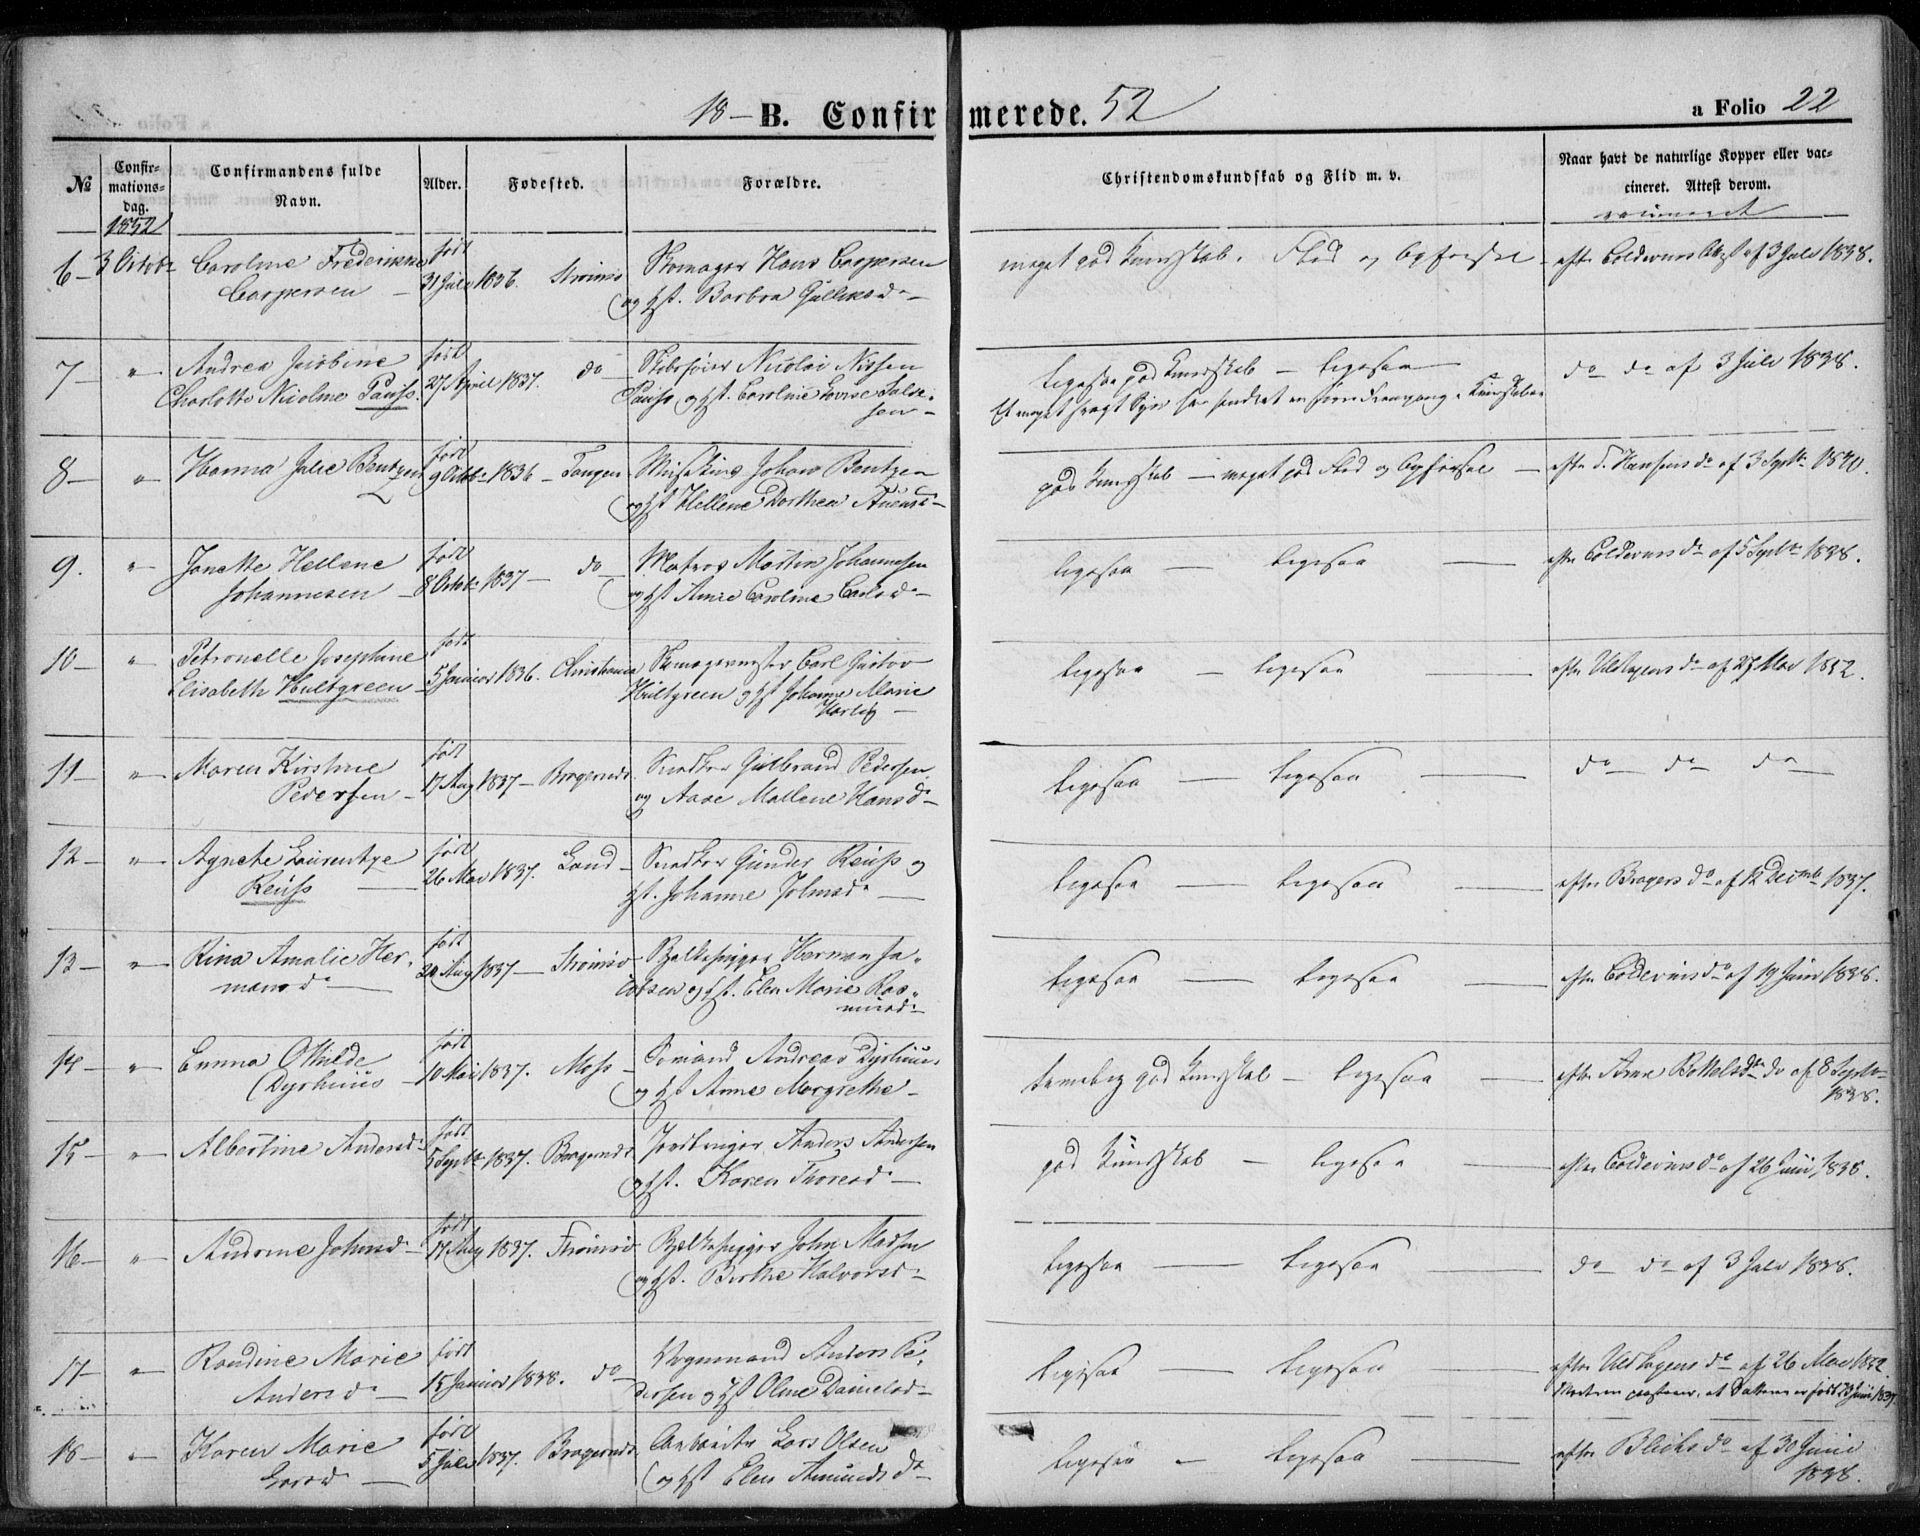 18 — B. Confirmerede. 52
a Folio 22
№
Confirmations-dag.
1852
Confirmandens fulde Navn.
Alder.
Fødested.
Forældre.
Christendomskundskab og Flid m. v.
Naar havt de naturlige Kopper eller vaccineret. Attest derom.
vaccineret
6 — 3 Octobr Caroline Frederikke født Skomager Hans Caspersen meget god Kundskab. Flid og Opførsel — efter Coldevins Attest af 3 Juli 1838.
Caspersen — 31 Juli 1836. Strømsø og Hst. Barbra Gulliksd.
7 — " Andrea Jacobine født Nicolai Nissen ligesaa god Kundskab — ligesaa — do do af 3 Juli 1838.
Charlotte Nicoline Pauss. 27 April 1837. do Pauss og Hst. Caroline Lovise
Et meget svagt Syn har hindret en Fremgang i Kundskaber
8 — " Hanna Julie Bentzen født Johan Bentzen god Kundskab — meget god Flid og Opførsel — efter T. Hansens do af 3 Septbr 1840.
9 Octobr 1836 — Tangen og Hst Hellene Dorthea
9. " Janette Hellene født Matros Martin Johannesen ligesaa — ligesaa — efter Coldevins do af 5 Septbr 1838.
Johannesen — 8 Octobr 1837 — do og Hst Anne Caroline Carlsd.
10 — " Petronelle Josephine født Skomagermester Carl Gustav ligesaa — ligesaa — efter Uldtagens do af 27 Mai 1852.
Elisabeth Hultgreen — 5 Januar 1836. Christiania Hultgreen og Hst Johanne Marie
11 — " Maren Kirstine født Snedker Gulbrand Pedersen ligesaa — ligesaa — do — do — do —
Pedersen — 17 Aug 1837 — Bragernæs og Aase Mallene Hansd.
12 — " Agnete Laurentze født Snedker Gunder Reuss og ligesaa — ligesaa — efter Bragers do af 12 Decmb 1837.
Reuss — 26 Mai 1837. Land — Hst. Johanne
13 — " Rina Amalie Her- født Bjelkehugger Herman Ja- ligesaa — ligesaa — efter Coldevins do af 19 Juni 1838.
mansd. — 24 Aug 1837 — Strømsø cobsen og Hst. Elen Marie Ras-
musd.
14 — " Emma Othilde født Sømand Andreas Dyrhuus temmelig god Kundskab — ligesaa — efter Arne Bottelsens do af 8 Septbr
Dyrhuus — 10 Mai 1837. Moss — og Hst Anne Margrethe — 1838.
15 — " Albertine Andersd. født Anders Andersen god Kundskab — ligesaa — efter Coldevins do af 26 Juni 1838.
5 Septbr 1837. Bragernæs og Hst. Karen Thoresd. —
16 — " Andrine Johnsd. født Bjelkehugger John Madsen ligesaa — ligesaa — do do af 3 Juli 1838.
17 Aug 1837. Strømsø og Hst. Berthe Halvorsd.
17 — " Randine Marie født Vognmand Anders Pe- ligesaa — ligesaa — efter Uldtagens do af 26 Mai 1852.
Andersd. — 15 Januar 1838. do dersen og Hst Oline Danielsd. — Moderen paastaaer, at Datteren er født 23 Juni 1837
18 — " Karen Marie født Arbeider Lars Olsen ligesaa — ligesaa — efter Blichs do af 30 Juni
Larsd. — 5 Juli 1837. Bragernæs og Hst Elen Amundsd. — 1838.